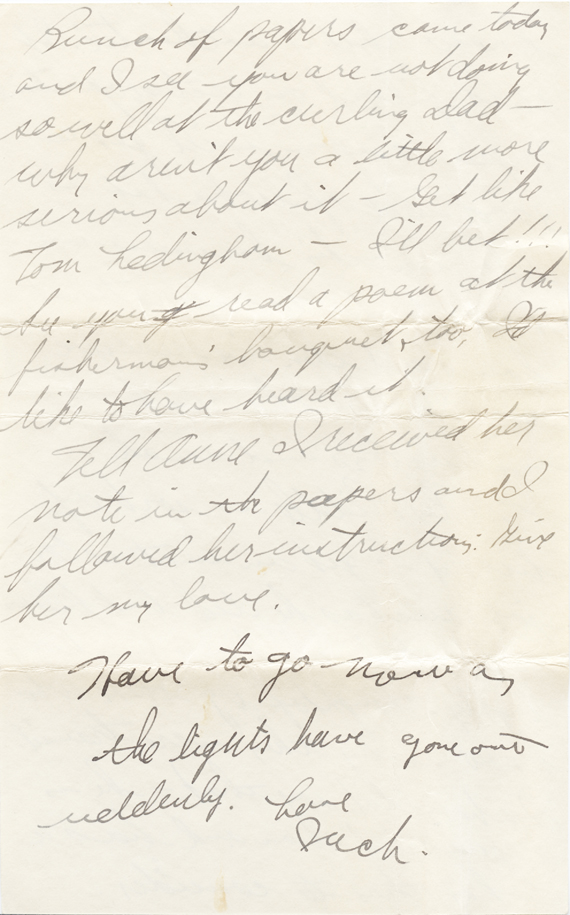 Bunch of papers came today
and I see you are not doing
so well at the curling Dad —
why aren't you a little more
serious about it — Get like
Tom Ledingham — I'll bet!!!
See you read a poem at the
fisherman's bouquet, too, I'd
like to have heard it.
Tell Anne I received her
note in the papers and I
followed her instructions. Give
her my love.
Have to go now as
the lights have gone out
suddenly. Love